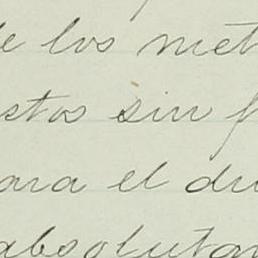 de los met
stos sin f
ara el du
absoluta